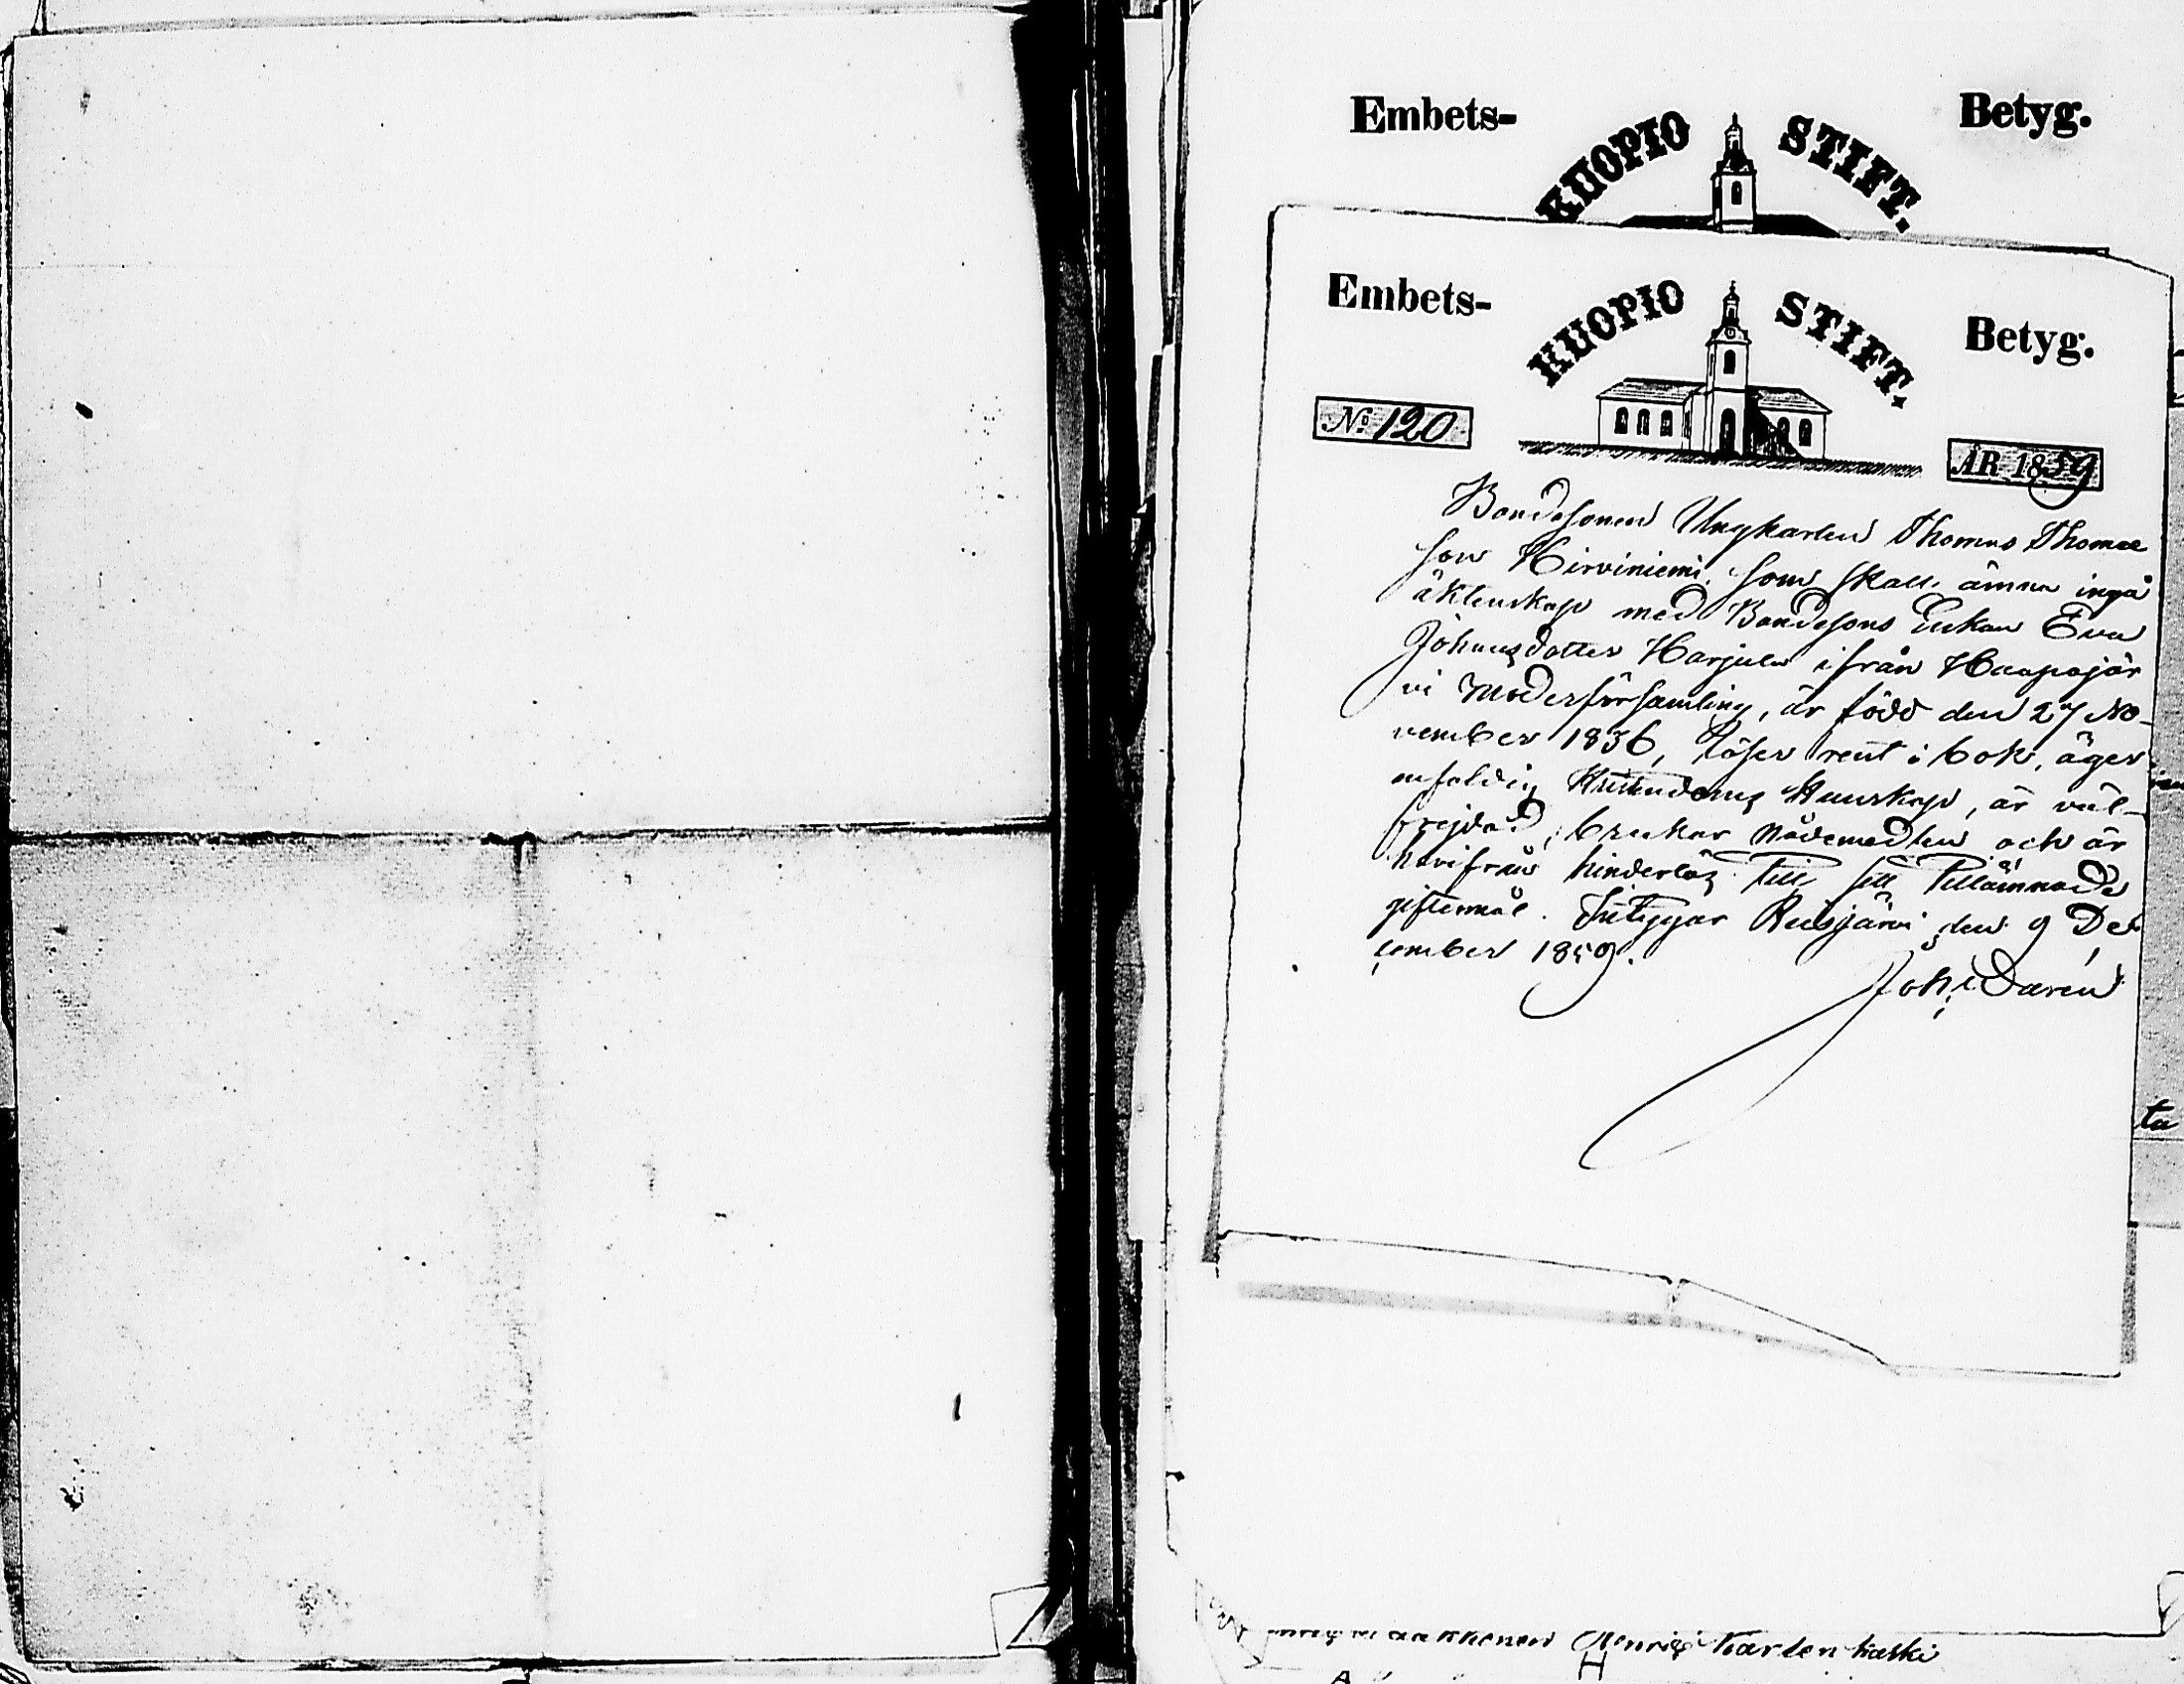 Embets- KUOPIO STIFT. Betyg.
Embets- KUOPIO STIFT. Betyg.
No 120
ÅR 1859
Bondesonen Ungkarlen Thomas Thomæ
son Hirviniemi, som skall ämna ingå
äktenskap med Bondesons Enkan Eva
Johansdotter Harjula ifrån Haapajär
vi Moderförsamling, är född den 27 No-
vember 1836, läser rent i bok, äger
enfaldig Kristendoms Kunskap, är väl-
frejdad, brukar Nådemedlen och är
härifrån hinderlös till sitt tillämnade
giftermål. Intygar Reisjärvi den 9 De
cember 1859.
Joh:
ta
Henric Karlen